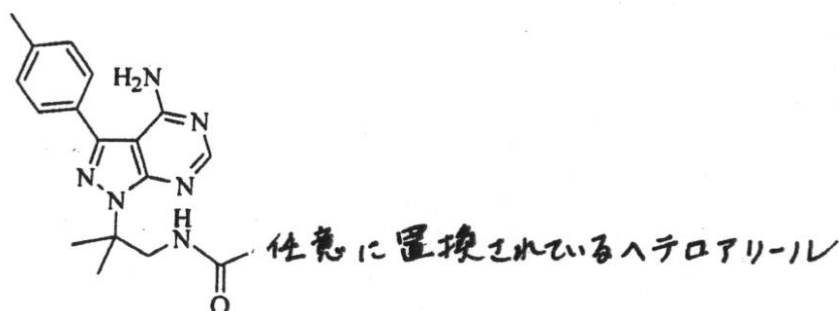 H₂N
N
N
N
N
H
N
O
任意に置換されているヘテロアリール